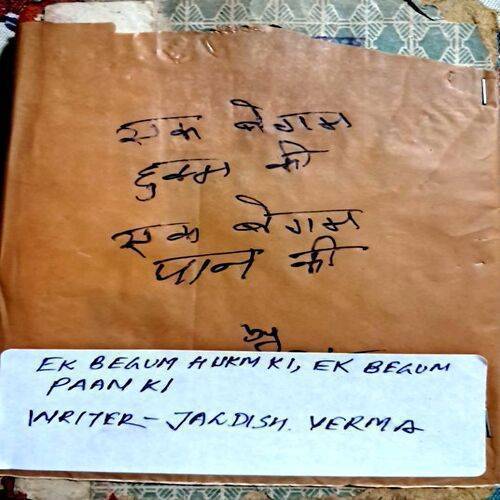 एक बेगम
हुक्म की
एक बेगम
पान की
by
EK BEGUM HUKM KI, EK BEGUM
PAAN KI
WRITER - JAGDISH VERMA